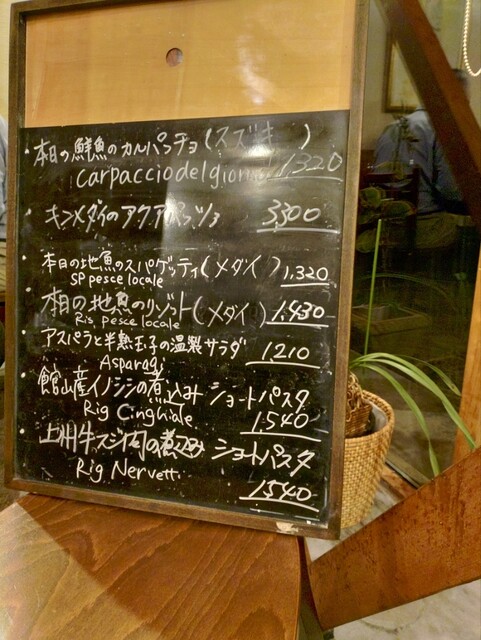 ・本日の鮮魚のカルパッチョ(スズキ)
carpaccio del giorno 1.320
・キンメダイのアクアパッツァ 3,300
・本日の地魚のスパゲッティ(メダイ) 1,320
SP pesce locale
・本日の地魚のリゾット(メダイ) 1,430
Ris pesce locale
・アスパラと半熟玉子の温製サラダ 1210
Asparagi
・館山産イノシシの煮込み ショートパスタ
Rig Cinghiale 1.540
・上州牛スジ肉の煮込み ショートパスタ
Rig Nervetti
1.540